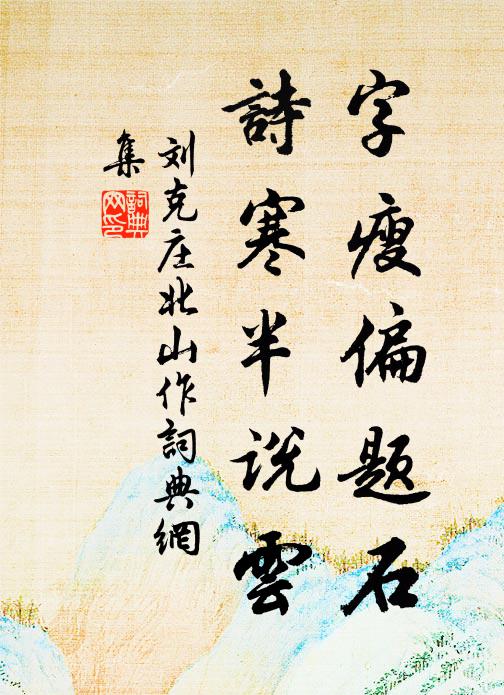 字瘦偏題石
詩寒半说雲
刘克庄北山作詞典網
集
詞典
网印